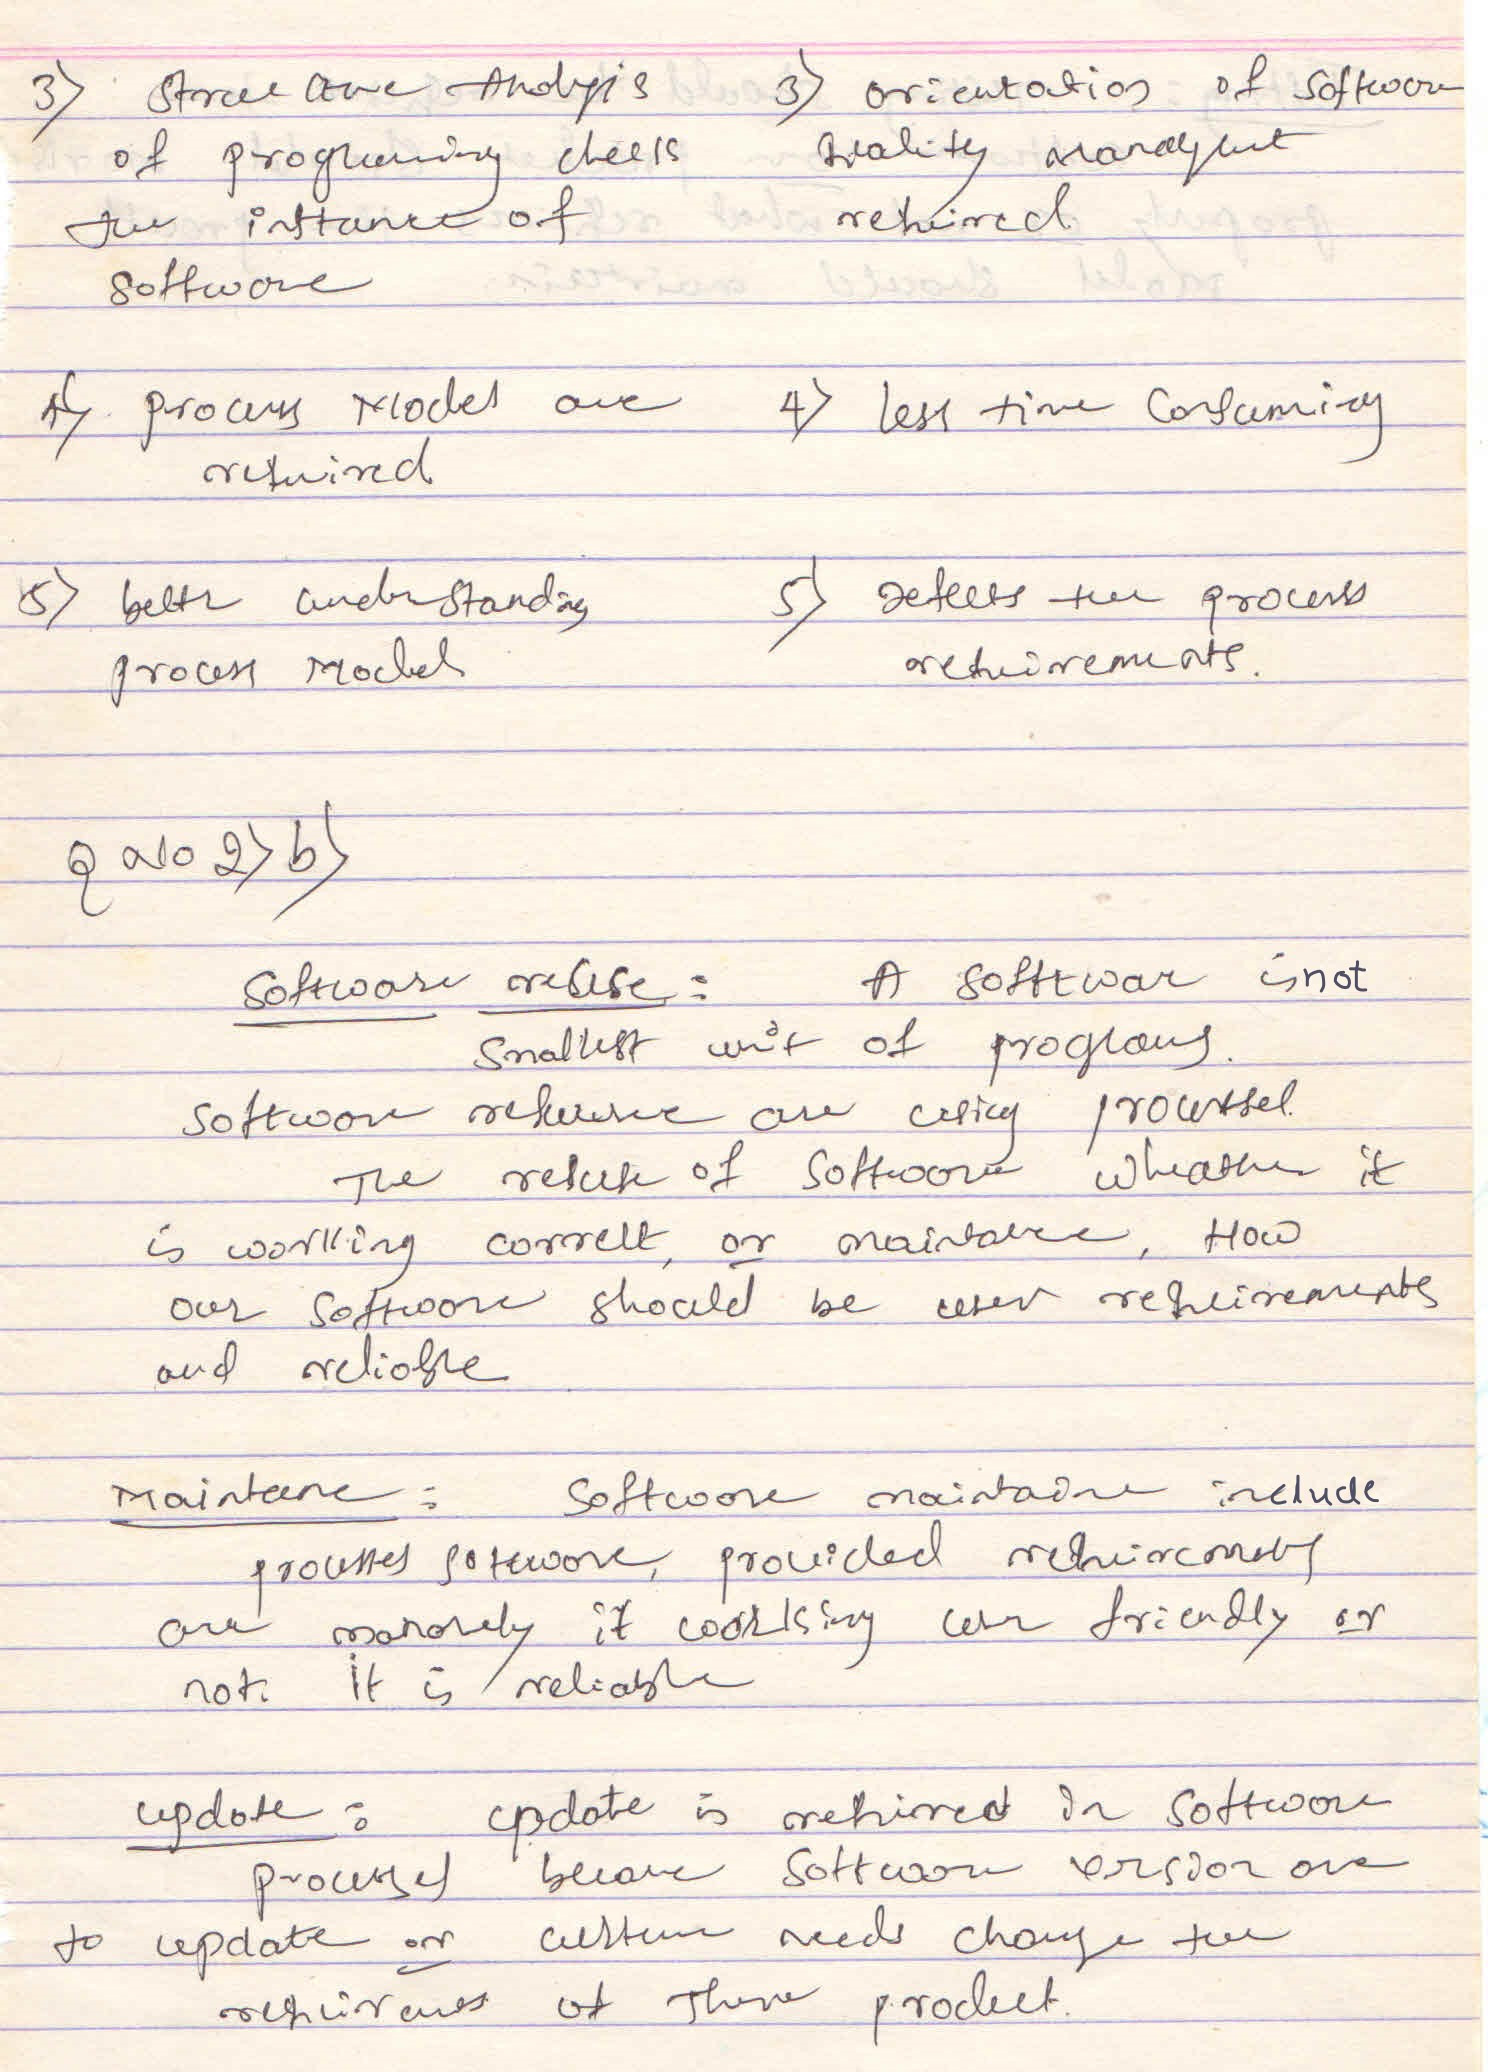 3) Structure Analysis
of programing checks
the instance of
software
3) orientation of software
quality
required.
4) process Models are
required.
4) less time Consuming
5) better understanding
process Models
5) Detects the process
requirements.
Q No 2) b)
Software reuse : A software is not
smallest unit of programs.
Software are using processes.
The reuse of software wheather it
is working correct, or maintance, How
our software should be user requirements
and reliable
Maintance : Software maintaine include
processes software, provided requirements
are it working user friendly or
not. It is reliable
update : update is required in software
processes because software version are
to update or needs change the
of There product.